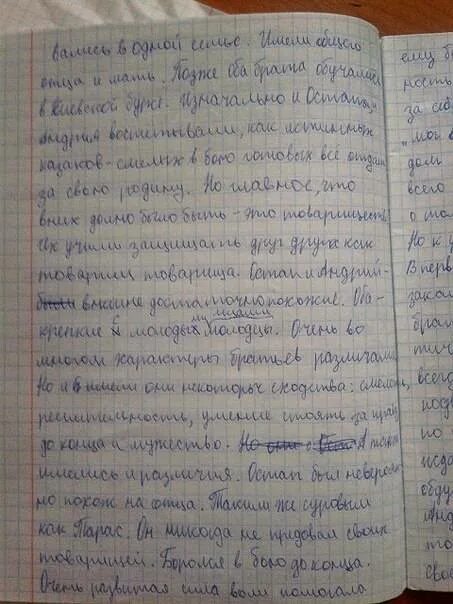 вались в одной семье. Имели общего
отца и мать. Позже оба брата обучались
в Киевской бурсе. Изначально и Остапа, и
Андрия воспитывали, как истинных
казаков - смелых в бою готовых всё отдать
за свою родину. Но главное, что
в них должно было быть - это товарищество.
Их учили защищать друг друга как
товарищ товарища. Остап и Андрий -
были внешне достаточно похожие. Оба -
крепкие с молодыми лицами молодцы. Очень во
многом характеры братьев различались.
Но и имели они некоторых сходства: смелость,
решительность, умение стоять за правду
до конца и мужество. Но они с А также
имелись и различия. Остап был невероят-
но похож на отца. Таким же суровым
как Тарас. Он никогда не предавал своих
товарищей. Боролся в бою до конца.
Очень развитая сила воли помогала
ему бр
ность
за соб
"мои в
дом
всего
о том
Но к у
В перв
закон
брат
тич
всегд
подв
по
жда
обду
Анд
то
свое